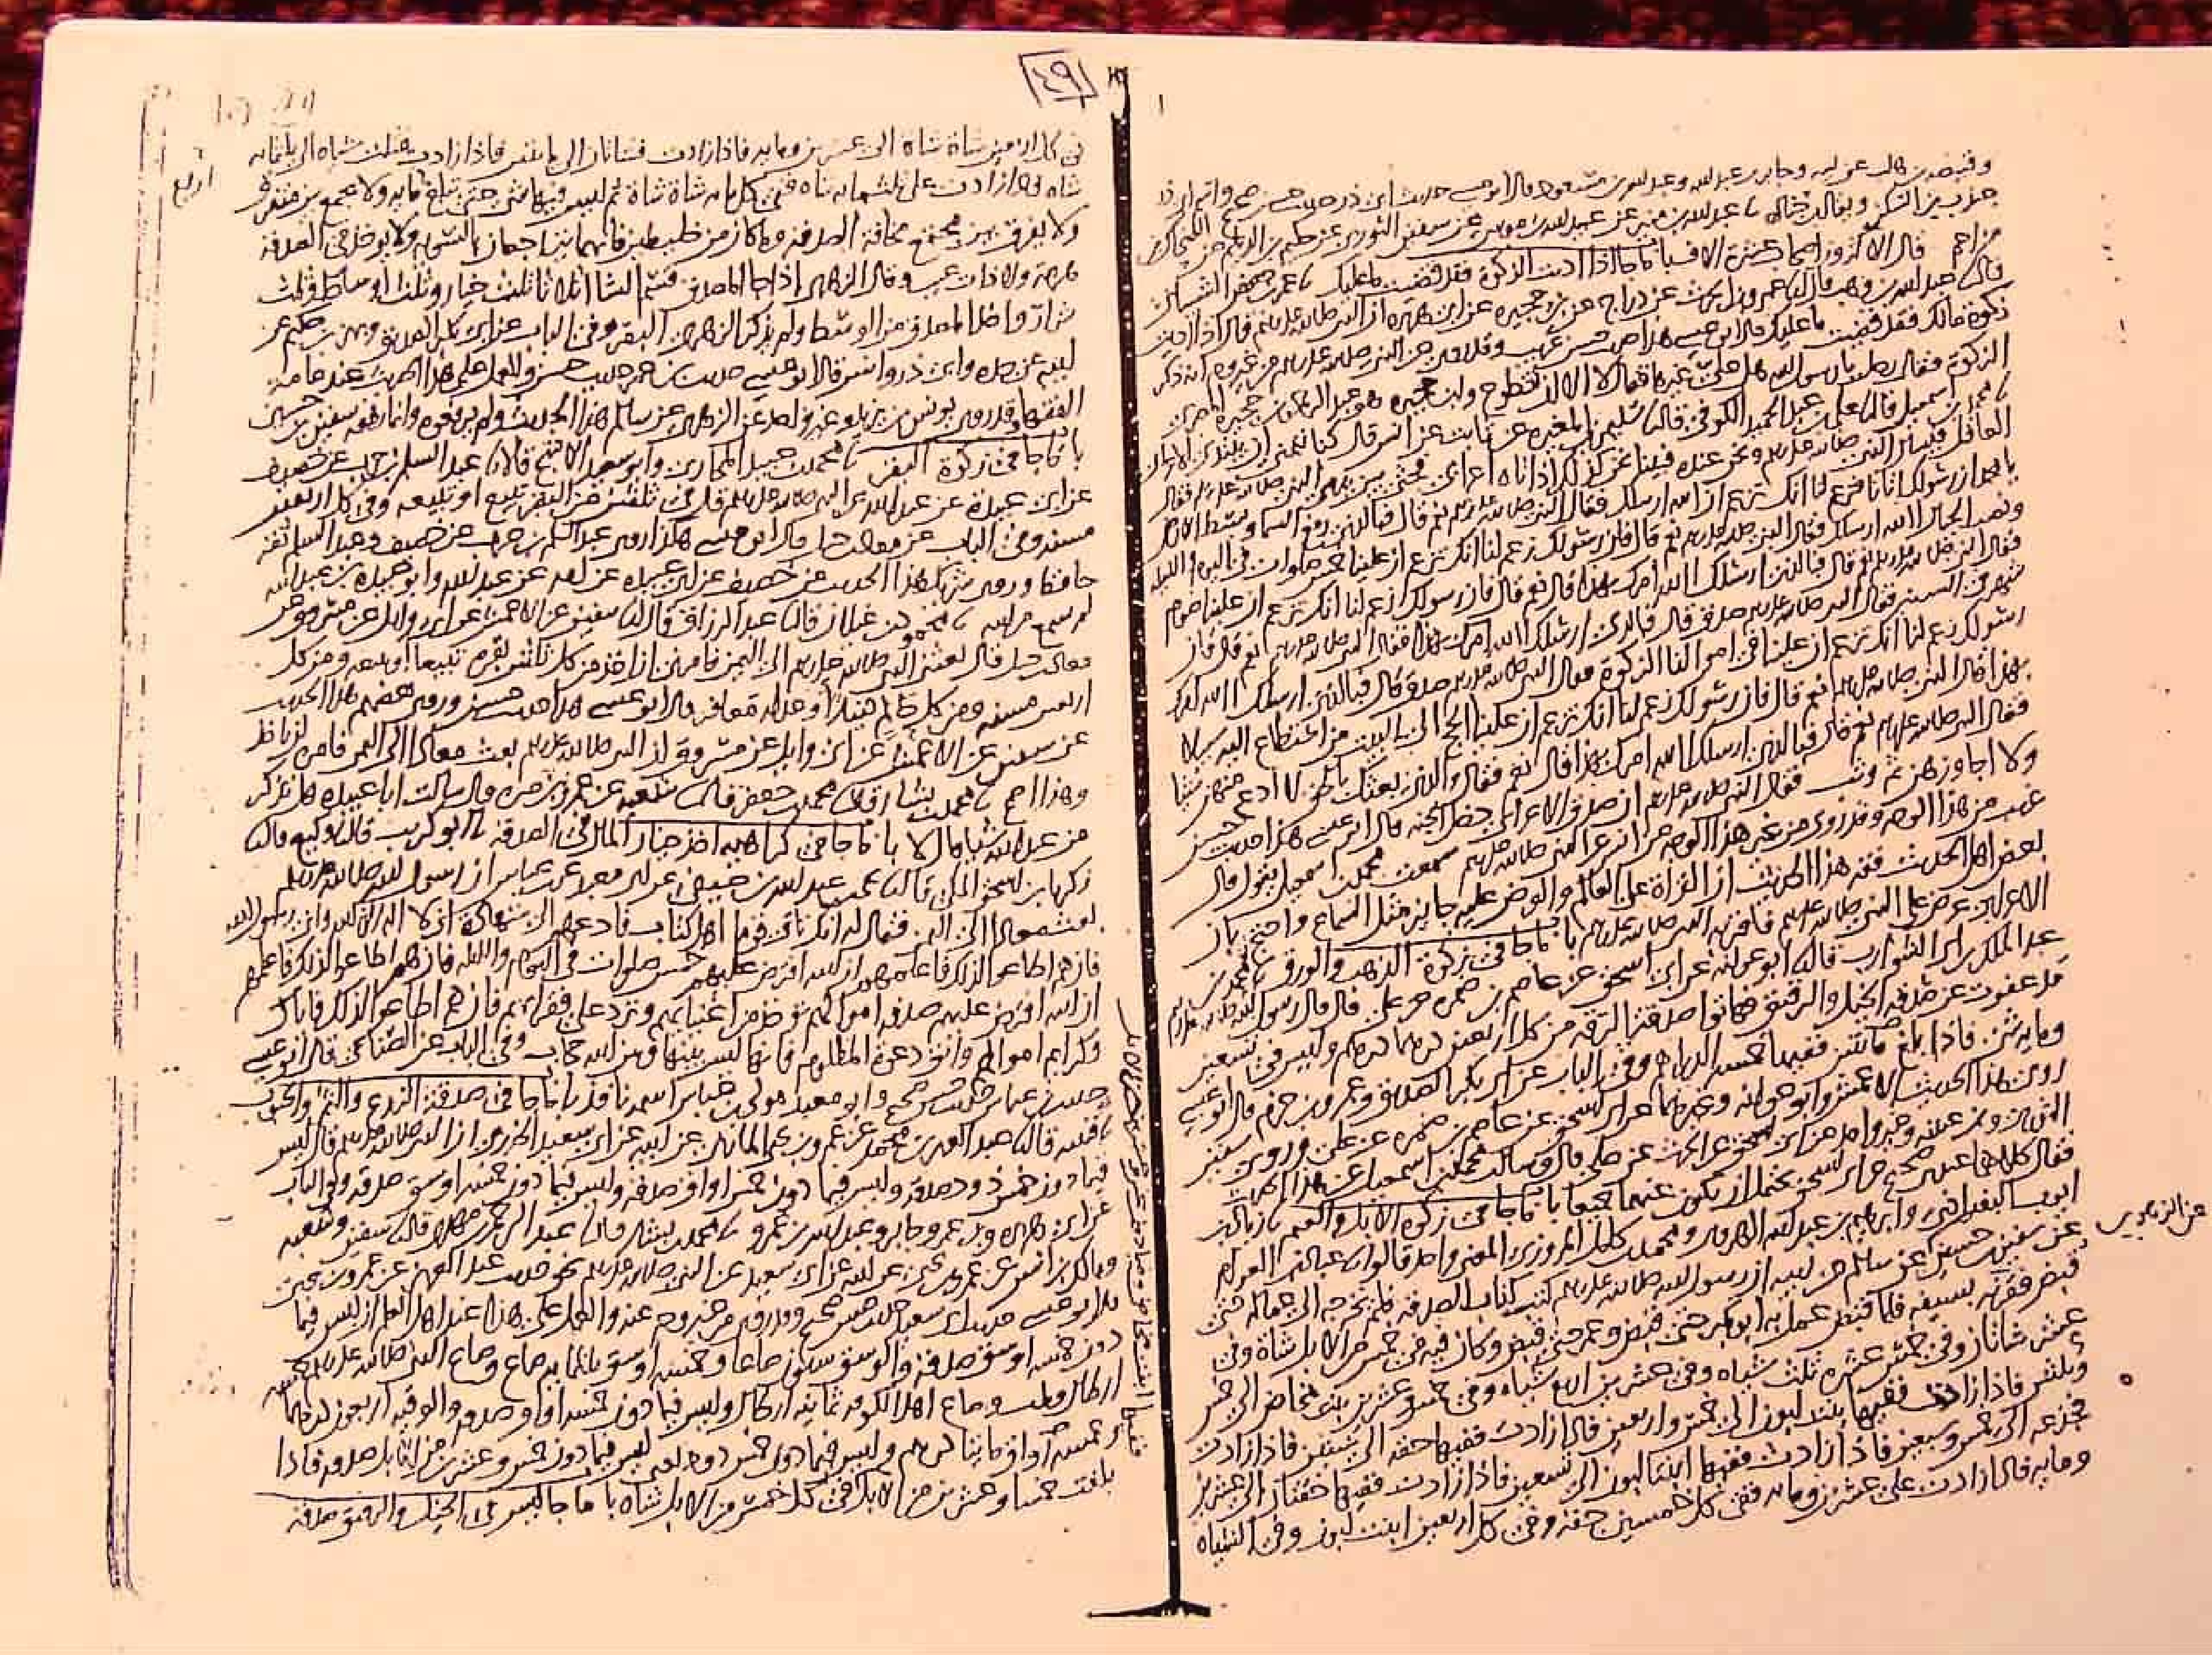 وقبيصة بن هلب عن ابيه وجابر بن عبد الله وعبد الله بن مسعود قال ابو عيسى حديث ابي ذر حديث حسن صحيح واسم ابي ذر
جندب بن السكن ويقال ابن جناده عبد الله بن منير عن عبيد الله بن موسى عن سفين الثوري عن حكيم بن الديلم عن الضحاك بن
مزاحم قال الاكثرون اصحاب عشرة الاف باب ما جا اذا اديت الزكوة فقد قضيت ما عليك عمر بن حفص الشيباني
قال عبد الله بن وهب قال عمرو بن الحرث عن دراج عن بن حجيره عن ابي هريرة ان النبي صلى الله عليه وسلم قال اذا اديت
زكوة مالك فقد قضيت ما عليك قال ابو عيسى هذا حديث حسن غريب وقد روي عن النبي صلى الله عليه وسلم من غير وجه انه ذكر
الزكوة فقال رجل يا رسول الله هل علي غيرها فقال لا الا ان تتطوع وابن حجيره هو عبد الرحمن بن حجيره المصري
محمد بن اسمعيل قال علي بن عبد الحميد الكوفي قال سليمن بن المغيره عن ثابت عن انس قال كنا نتمنى ان يبتدئ الاعرابي
العاقل فيسال النبي صلى الله عليه وسلم ونحن عنده فبينا نحن كذلك اذ اتاه اعرابي فجثى بين يدي النبي صلى الله عليه وسلم فقال
يا محمد ان رسولك اتانا فزعم لنا انك تزعم ان الله ارسلك فقال النبي صلى الله عليه وسلم نعم قال فبالذي رفع السما وبسط الارض
ونصب الجبال الله ارسلك فقال النبي صلى الله عليه وسلم نعم قال فان رسولك زعم لنا انك تزعم ان علينا خمس صلوات في اليوم والليله
فقال النبي صلى الله عليه وسلم نعم قال فبالذي ارسلك الله امرك بهذا قال نعم قال فان رسولك زعم لنا انك تزعم ان علينا صوم
شهر في السنه فقال النبي صلى الله عليه وسلم صدق قال فبالذي ارسلك الله امرك بهذا فقال النبي صلى الله عليه وسلم نعم قال فان
رسولك زعم لنا انك تزعم ان علينا في اموالنا الزكوة فقال النبي صلى الله عليه وسلم صدق قال فبالذي ارسلك الله امرك
بهذا قال النبي صلى الله عليه وسلم نعم قال فان رسولك زعم لنا انك تزعم ان علينا الحج الى البيت من استطاع اليه سبيلا
فقال النبي صلى الله عليه وسلم نعم قال فبالذي ارسلك الله امرك بهذا قال نعم فقال والذي بعثك بالحق لا ادع منهن شيئا
ولا اجاوزهن ثم وثب فقال النبي صلى الله عليه وسلم ان صدق الاعرابي دخل الجنه قال ابو عيسى هذا حديث حسن
غريب من هذا الوجه وقد روي من غير هذا الوجه عن انس عن النبي صلى الله عليه وسلم سمعت محمد بن اسمعيل يقول قال
بعض اهل الحديث فقه هذا الحديث ان القراة على العالم والعرض عليه جايز مثل السماع واحتج بان
الاعرابي عرض على النبي صلى الله عليه وسلم فاقر به النبي صلى الله عليه وسلم باب ما جا في زكوة الذهب والورق محمد بن
عبد الملك بن ابي الشوارب قال ابو عوانه عن ابي اسحق عن عاصم بن ضمره عن علي قال قال رسول الله صلى الله عليه وسلم
قد عفوت عن صدقه الخيل والرقيق فهاتوا صدقه الرقه من كل اربعين درهما درهم وليس في تسعين
ومايه شي فاذا بلغ مائتين ففيها خمسه الدراهم وفي الباب عن ابي بكر الصديق وعمرو بن حزم قال ابو عيسى
روى هذا الحديث الاعمش وابو عوانه وغيرهما عن ابي اسحق عن عاصم بن ضمره عن علي وروى سفين
الثوري وابن عيينه وغير واحد عن ابي اسحق عن الحرث عن علي قال وسالت محمد بن اسمعيل عن هذا الحديث
فقال كلاهما عندي صحيح عن ابي اسحق يحتمل ان يكون عنهما جميعا باب ما جا في زكوة الابل والغنم زياد بن
ايوب البغدادي وابرهيم بن عبد الله الهروي ومحمد بن كامل المروزي المعنى واحد قالوا عباد بن العوام
عن سفين بن حسين عن سالم عن ابيه ان رسول الله صلى الله عليه وسلم كتب كتاب الصدقه فلم يخرجه الى عماله حتى
عن الزهري
قبض فقرنه بسيفه فلما قبض عمل به ابو بكر حتى قبض وعمر حتى قبض وكان فيه في خمس من الابل شاة وفي
عشر شاتان وفي خمس عشره ثلث شياه وفي عشرين اربع شياه وفي خمس وعشرين بنت مخاض الى خمس
وثلثين فاذا زادت ففيها بنت لبون الى خمس واربعين فاذا زادت ففيها حقه الى ستين فاذا زادت
فجذعه الى خمس وسبعين فاذا زادت ففيها ابنتا لبون الى تسعين فاذا زادت ففيها حقتان الى عشرين
ومايه فاذا زادت على عشرين ومايه ففي كل خمسين حقه وفي كل اربعين ابنت لبون وفي الشياه
٤٩
في كل اربعين شاة شاة الى عشرين ومايه فاذا زادت فشاتان الى مايتين فاذا زادت فثلث شياه الى ثلثمايه
شاه فاذا زادت على ثلثمايه شاه ففي كل مايه شاة شاة ثم ليس فيها شي حتى تبلغ مايه ولا يجمع بين متفرق
اربع
ولا يفرق بين مجتمع مخافة الصدقه وما كان من خليطين فانهما يتراجعان بالسويه ولا يوخذ في الصدقه
هرمة ولا ذات عيب وقال الزهري اذا جا المصدق قسم الشا اثلاثا ثلث خيار وثلث اوساط وثلث
شرار واخذ المصدق من الوسط ولم يذكر الزهري البقر وفي الباب عن ابي بكر الصديق وبهز بن حكيم عن
ابيه عن جده وابي ذر وانس قال ابو عيسى حديث بن عمر حديث حسن والعمل على هذا الحديث عند عامة
الفقها وقد روى يونس بن يزيد وغير واحد عن الزهري عن سالم هذا الحديث ولم يرفعوه وانما رفعه سفين بن حسين
باب ما جا في زكوة البقر محمد بن عبيد المحاربي وابو سعيد الاشج قالا عبد السلم بن حرب عن خصيف
عن ابي عبيدة عن عبد الله عن النبي صلى الله عليه وسلم قال في ثلثين من البقر تبيع او تبيعه وفي كل اربعين
مسنه وفي الباب عن معاذ بن جبل قال ابو عيسى هكذا روى عبد السلم بن حرب عن خصيف وعبد السلم ثقه
حافظ وروى شريك هذا الحديث عن خصيف عن ابي عبيدة عن امه عن عبد الله وابو عبيدة بن عبد الله
لم يسمع من ابيه محمود بن غيلان قال عبد الرزاق قال سفين عن الاعمش عن ابي وايل عن مسروق عن
معاذ بن جبل قال بعثني النبي صلى الله عليه وسلم الى اليمن فامرني ان اخذ من كل ثلثين بقره تبيعا او تبيعه ومن كل
اربعين مسنه ومن كل حالم دينارا او عدله معافر قال ابو عيسى هذا حديث حسن وروى بعضهم هذا الحديث
عن سفين عن الاعمش عن ابي وايل عن مسروق ان النبي صلى الله عليه وسلم بعث معاذا الى اليمن فامره ان ياخذ
وهذا اصح محمد بن بشار قال محمد بن جعفر قال شعبه عن عمرو بن مره قال سالت ابا عبيده هل تذكر
من عبد الله شيا قال لا باب ما جا في كراهيه اخذ خيار المال في الصدقه ابو كريب قال وكيع قال
زكريا بن اسحق المكي قال يحيى بن عبد الله بن صيفي عن ابي معبد عن ابن عباس ان رسول الله صلى الله عليه وسلم
بعث معاذا الى اليمن فقال له انك تاتي قوما اهل كتاب فادعهم الى شهادة ان لا اله الا الله واني رسول الله
فان هم اطاعوا لذلك فاعلمهم ان الله افترض عليهم خمس صلوات في اليوم والليله فان هم اطاعوا لذلك فاعلمهم
ان الله افترض عليهم صدقه اموالهم توخذ من اغنيايهم وترد على فقرايهم فان هم اطاعوا لذلك فاياك
وكرايم اموالهم واتق دعوة المظلوم فانها ليس بينها وبين الله حجاب وفي الباب عن الصنابحي قال ابو عيسى
حديث بن عباس حديث حسن صحيح وابو معبد مولى بن عباس اسمه نافذ باب ما جا في صدقه الزرع والثمر والحبوب
قتيبه قال عبد العزيز بن محمد عن عمرو بن يحيى المازني عن ابيه عن ابي سعيد الخدري ان النبي صلى الله عليه وسلم قال ليس
فيما دون خمس ذود صدقه وليس فيما دون خمس اواق صدقه وليس فيما دون خمسه اوسق صدقه وفي الباب
عن ابي هريره وبن عمر وجابر وعبد الله بن عمرو محمد بن بشار قال عبد الرحمن بن مهدي قال سفين وشعبه
ومالك بن انس عن عمرو بن يحيى عن ابيه عن ابي سعيد عن النبي صلى الله عليه وسلم نحو حديث عبد العزيز عن عمرو بن يحيى
قال ابو عيسى حديث ابي سعيد حديث حسن صحيح وقد روي من غير وجه عنه والعمل على هذا عند اهل العلم ان ليس فيما
دون خمسه اوسق صدقه والوسق ستون صاعا وخمسه اوسق ثلثمايه صاع وصاع النبي صلى الله عليه وسلم خمسه
ارطال وثلث وصاع اهل الكوفه ثمانيه ارطال وليس فيما دون خمسه اواق صدقه والوقيه اربعون درهما
وخمس اواق مايتا درهم وليس فيما دون خمس ذود يعني ليس فيما دون خمس وعشرين من الابل صدقه فاذا
بلغت خمسا وعشرين من الابل ففي كل خمس من الابل شاه باب ما جا ليس في الخيل والرقيق صدقه